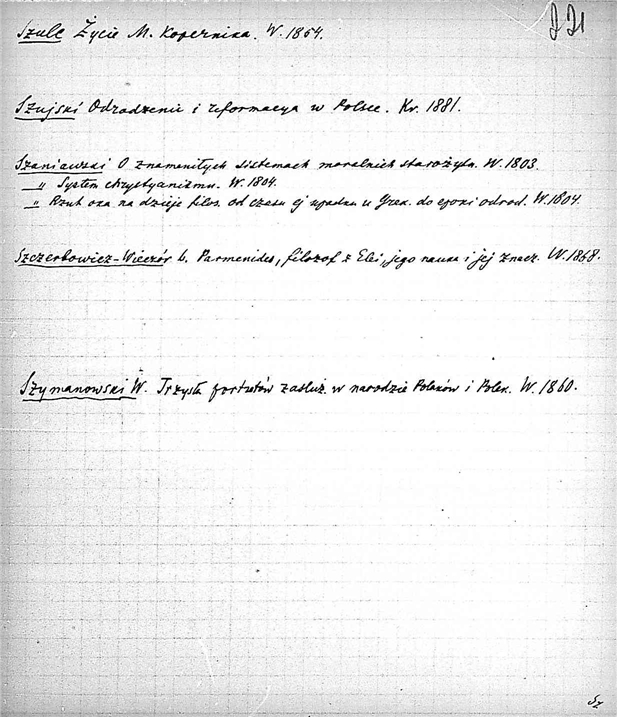 221
Szulc Życie M. Kopernika. W. 1854.
Szujski Odrodzenie i reformacya w Polsce. Kr. 1881.
Szaniawski O znamenitych sistemach moralnich starożytn. W. 1803.
" System chrystyanizmu. W. 1804.
" Rzut oka na dzieje filos. od czasu ej upadku u Grek. do epoki odrod. W. 1804.
Szczerbowicz-Wieczór b. Parmenides, filozof z Elei, jego nauka i jej znacz. W. 1868.
Szymanowski W. Trzysta portretów zasłuż. w narodzie Polaków i Polek. W. 1860.
Sz